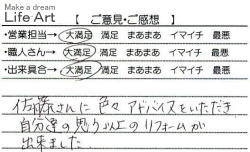 Make a dream
Life Art 【 ご意見・ご感想 】
・営業担当→ 大満足 満足 まあまあ イマイチ 最悪
・職人さん→ 大満足 満足 まあまあ イマイチ 最悪
・出来具合→ 大満足 満足 まあまあ イマイチ 最悪
佐藤さんに色々アドバイスをいただき
自分達の思う以上のリフォームが
出来ました。